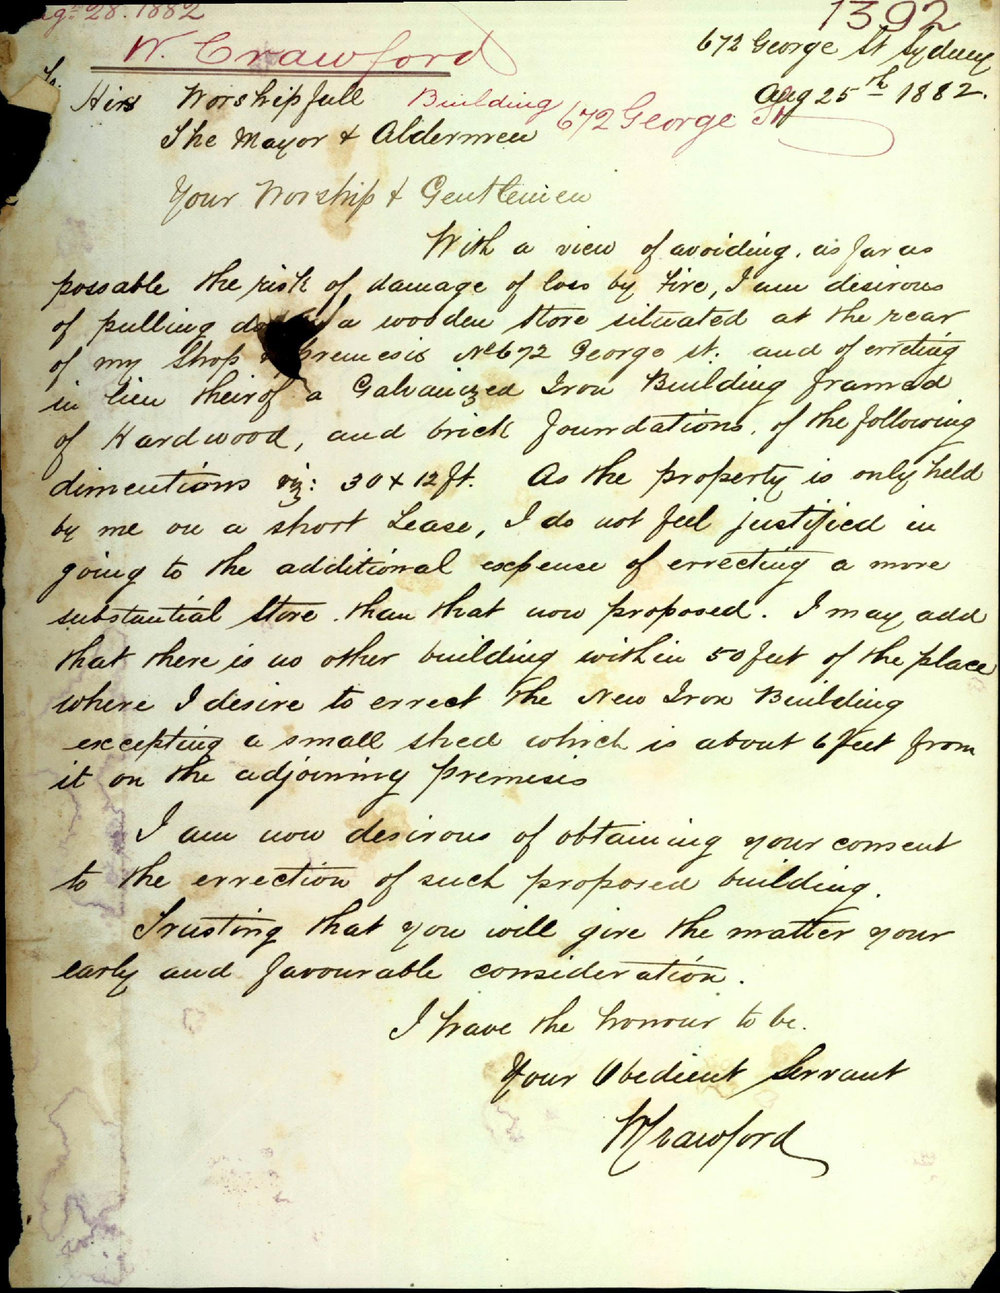 Aug. 28. 1882
1392
W. Crawford
672 George St Sydney
Aug 25th 1882.
To. His Worshipfull
Building
672 George St
The Mayor & Aldermen
Your Worship & Gentlemen
With a view of avoiding, as far as
possable the risk of damage of loss by Fire, I am desirous
of pulling a wooden Store situated at the rear
of my Shop & Premesis No 672 George st. and of errecting
in lieu theirof a Galvanized Iron Building framed
of Hardwood, and brick foundations, of the following
dimentions viz: 30 x 12 ft. As the property is only held
by me on a short Lease, I do not feel justified in
going to the additional expense of errecting a more
substantial Store than that now proposed. I may add
that there is no other building within 50 feet of the place
where I desire to errect the New Iron Building
excepting a small shed which is about 6 feet from
it on the adjoining premesis
I am now desirous of obtaining your consent
to the errection of such proposed building.
Trusting that you will give the matter your
early and favourable consideration.
I have the honour to be.
Your Obedient Servant
W Crawford